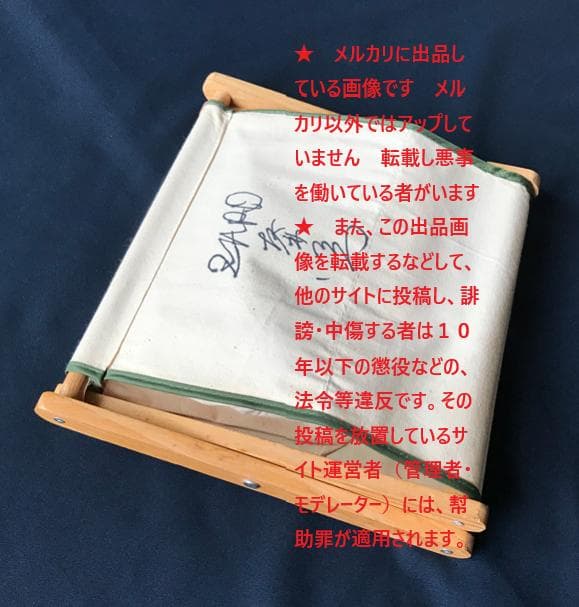 ★　メルカリに出品し
ている画像です　メル
カリ以外ではアップして
いません　転載し悪事
を働いている者がいます
★　また、この出品画
像を転載するなどして、
他のサイトに投稿し、誹
謗・中傷する者は１０
年以下の懲役などの、
法令等違反です。その
投稿を放置しているサ
イト運営者（管理者・
モデレーター）には、幇
助罪が適用されます。